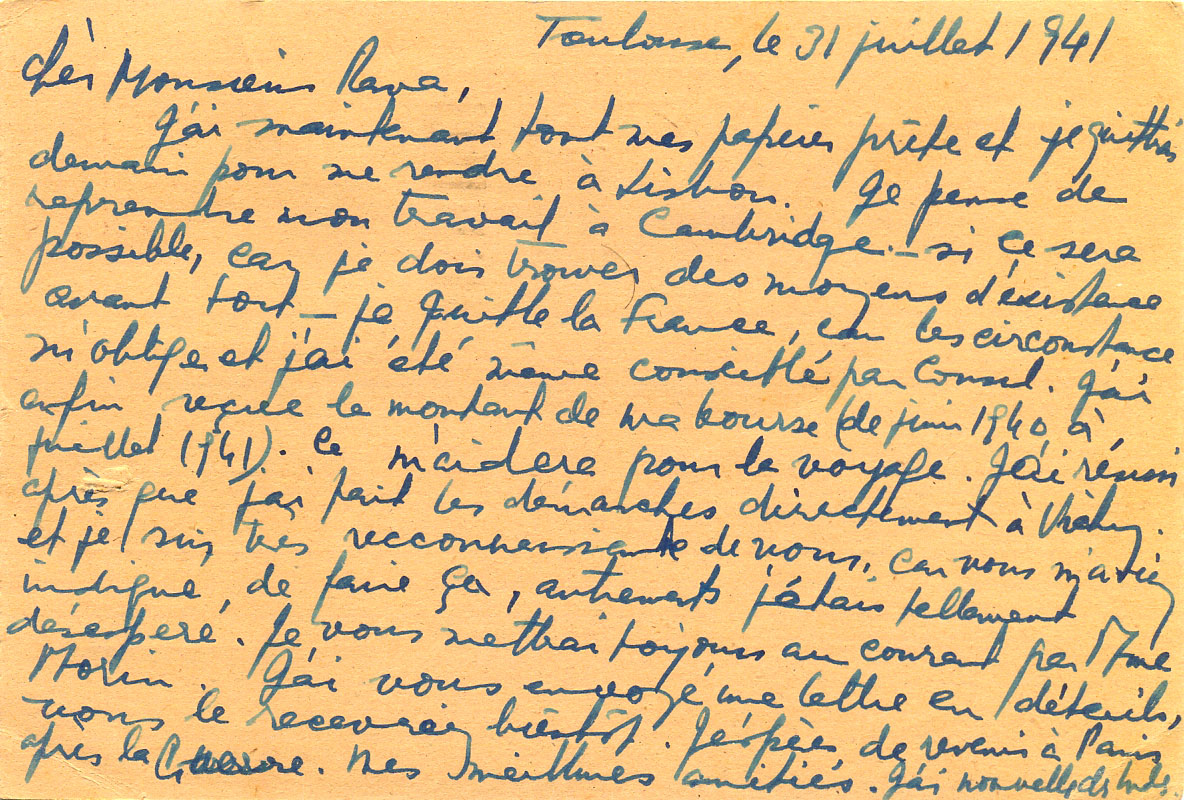 Toulouse, le 31 juillet 1941
Chèr Monsieur Rava,
J'ai maintenant tout mes papiers prête et je quittrai
demain pour me rendre à Lisbon. Je pense de
reprendre mon travail à Cambridge – si ce sera
possible, car je dois trouver des moyens d'existence
avant tout – je quitte la France, car les circonstance
m'oblige et j'ai été même conseillé par Consul. J'ai
enfin reçue le montant de ma bourse (de juin 1940 à
juillet 1941). Ce m'aidera pour le voyage. J'ai réussi
après que j'ai fait les démarches directement à Vichy.
et je suis très reconnaissante de vous, car vous m'aviez
indiqué, de faire ça, autrements j'étais tellement
désespéré. Je vous mettrai toujours au courant par Mme
Morin. J'ai vous envoyé une lettre en détails,
vous le recevrez bientôt. J'éspères de revenir à Paris
après la Guerre. Mes meilleures amitiés. J'ai nouvelle